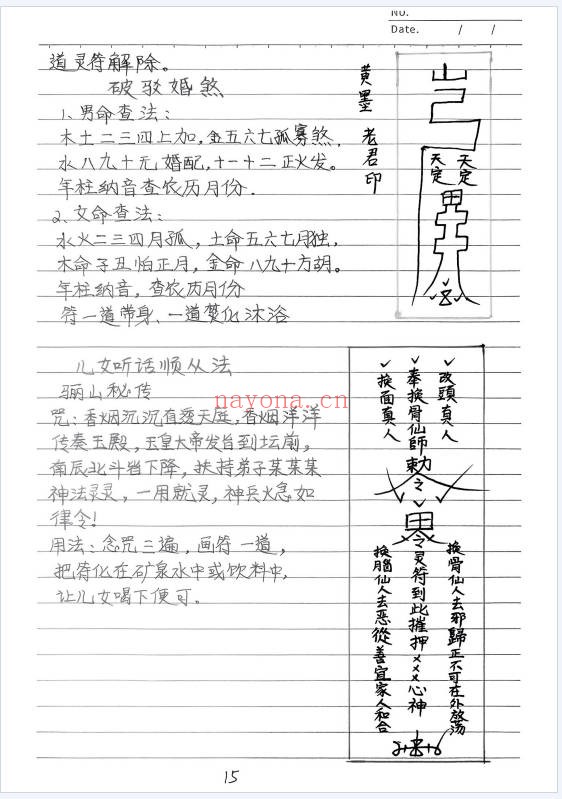 NO.
Date. / /
道灵符解除。
破驳婚煞
1、男命查法：
木土二三四上加，金五六七孤寡煞，
水八九十元婚配，十一十二正火发。
年柱纳音查农历月份．
2、文命查法：
水火二三四月孤，土命五六七月独，
木命子丑怕正月，金命八九十方胡。
年柱纳音，查农历月份
符一道带身、一道焚化沐浴
黄墨 老君印
天定
天定
儿女听话顺从法
骊山秘传
咒：香烟沉沉直透天庭，香烟洋洋
传奏玉殿，玉皇大帝发旨到坛前，
南辰北斗皆下降，扶持弟子某某某
神法灵灵，一用就灵，神兵火急如
律令！
用法：念咒三遍，画符一道，
把符化在矿泉水中或饮料中，
让儿女喝下便可。
nayona.cn
改頭真人
奉换骨仙師
换面真人
敕令
灵符到此摧押×××心神
换骨仙人去邪歸正不可在外放荡
换腦仙人去恶從善宜家人和合
15